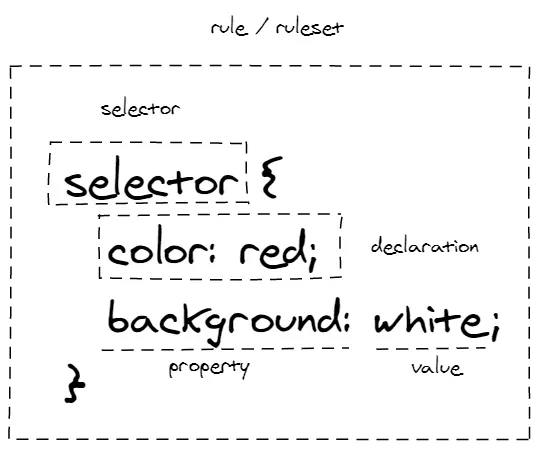 rule / ruleset
selector
selector {
color: red; declaration
background: white;
property value
}